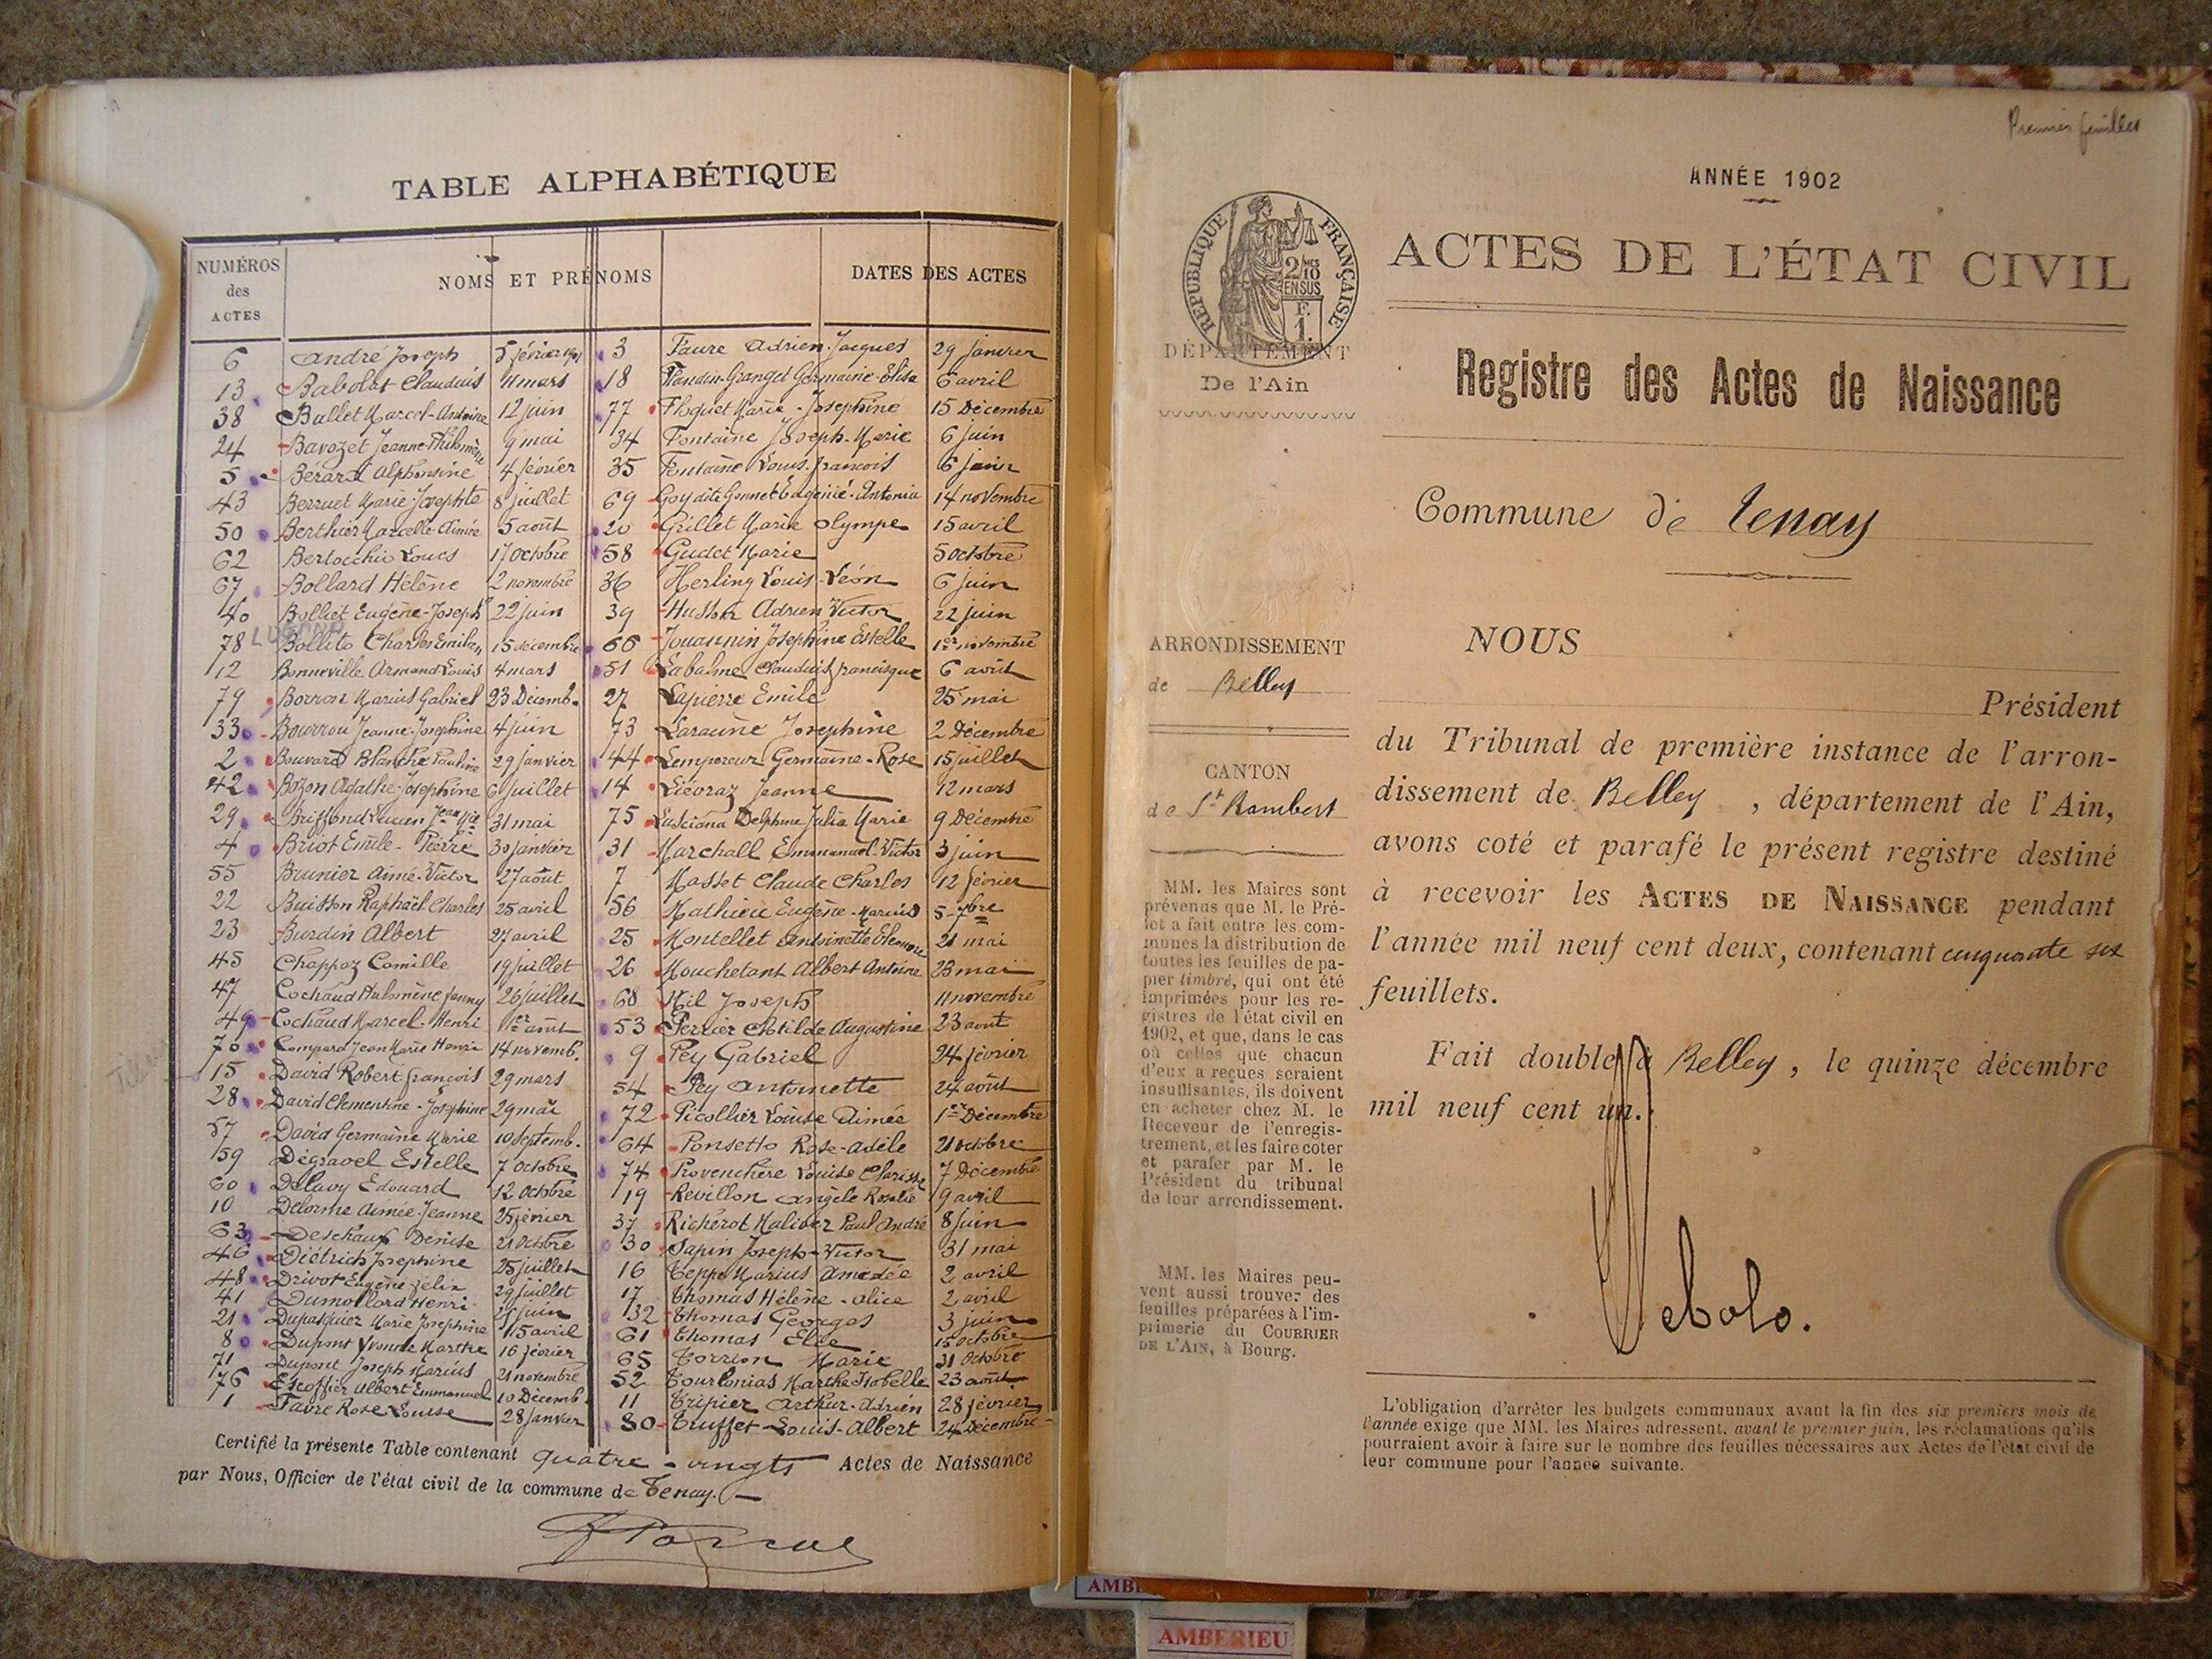 TABLE ALPHABÉTIQUE
NUMÉROS
des
ACTES
NOMS ET PRÉNOMS
DATES DES ACTES
6 André Joseph 5 février 1901
13 Babolat Claudius 11 mars
38 Ballet Marcel-Antoine 12 juin
24 Bavozet Jeanne-Philomène 9 mai
5 Bérard Alphonsine 4 février
43 Berruet Marie-Josephte 8 juillet
50 Berthier Marcelle-Aimée 5 août
62 Bertocchio Louis 17 octobre
67 Bollard Hélène 2 novembre
40 Bolliet Eugène-Joseph 22 juin
78 Bollito Charles Emilien 15 décembre
12 Bonneville Armand Louis 4 mars
79 Borron Marius Gabriel 23 Décemb.
33 Bourrou Jeanne-Josephine 4 juin
2 Bouvard Blanche Pauline 29 janvier
42 Bozon Agathe-Josephine 6 juillet
29 Briffond Lucien Jean 31 mai
4 Briot Emile-Pierre 30 janvier
55 Brunier Aimé-Victor 27 août
22 Buisson Raphaël Charles 25 avril
23 Burdin Albert 27 avril
45 Chappaz Camille 19 juillet
47 Cochaud Philomène Fanny 26 juillet
49 Cochaud Marcel-Henri 1er août
70 Compard Jean Marie Henri 14 novemb.
15 David Robert François 29 mars
28 David Clementine-Joséphine 29 mai
57 David Germaine Marie 10 Septemb.
59 Dégravel Estelle 7 octobre
60 Delavy Edouard 12 octobre
10 Delorme Aimée-Jeanne 25 février
63 Deschaux Denise 21 Octobre
46 Diétrich Josephine 25 juillet
48 Drivot Eugène-félix 29 juillet
41 Dumollard Henri juin
21 Dupasquier Marie Josephine 15 avril
8 Dupont Yvonne Marthe 16 février
71 Dupont Joseph Marius 21 novembre
76 Escoffier Albert Emmanuel 10 Décemb.
1 Favre Rose Louise 28 janvier
3 Faure Adrien-Jacques 29 janvier
18 Flandin-Granget Germaine-Elisa 6 avril
77 Floquet Marie-Josephine 15 Décembre
34 Fontaine Joseph-Marie 6 juin
35 Fontaine Louis-françois 6 juin
69 Goy dite Gonnet Eugénie-Antonia 14 novembre
20 Grillet Marie Olympe 15 avril
58 Gudet Marie 5 octobre
36 Herling Louis-Léon 6 juin
39 Husson Adrien Victor 22 juin
66 Jouannin Josephine Estelle 1er novembre
51 Labalme Claudius françisque 6 août
27 Lapierre Emile 25 mai
73 Laraune Josephine 2 Décembre
44 Lempereur Germaine-Rose 15 juillet
14 Liévraz Jeanne 12 mars
75 Lusciana Delphine Julia Marie 9 Décembre
31 Marchall Emmanuel-Victor 3 juin
7 Masset Claude Charles 12 février
56 Mathieu Eugène-Marius 5-7bre
25 Montellet Antoinette Eléonore 21 mai
26 Mouchetant Albert Antoine 23 mai
68 Nil Joseph 11 novembre
53 Perrier Clotilde Augustine 23 août
9 Pey Gabriel 24 février
54 Pey Antoinette 24 août
72 Picollier Louise Aimée 1er Décembre
64 Ponsetto Rose-Adèle 21 octobre
74 Provenchère Louise Clarisse 7 Décembre
19 Revillon Angèle Rosalie 9 avril
37 Richerot Paul André 8 juin
30 Sapin Joseph-Victor 31 mai
16 Teppe Marius Amédée 2 avril
17 Thomas Hélène-Alice 2 avril
32 Thomas Georges 3 juin
61 Thomas Elie 15 octobre
65 Torrion Marie 31 octobre
52 Tourlonias Marthe Isabelle 23 août
11 Tripier Arthur-Adrien 28 février
80 Truffet-Louis-Albert 24 Décembre
Certifié la présente Table contenant quatre-vingts Actes de Naissance
par Nous, Officier de l'état civil de la commune de Tenay.
Premier feuillet
ANNÉE 1902
RÉPUBLIQUE FRANÇAISE
2/10 MES
EN SUS
F.
1.
ACTES DE L'ÉTAT CIVIL
DÉPARTEMENT
De l'Ain
Registre des Actes de Naissance
Commune de Tenay
ARRONDISSEMENT
de Belley
CANTON
de St Rambert
MM. les Maires sont
prévenus que M. le Pré-
fet a fait entre les com-
munes la distribution de
toutes les feuilles de pa-
pier timbré, qui ont été
imprimées pour les re-
gistres de l'état civil en
1902, et que, dans le cas
où celles que chacun
d'eux a reçues seraient
insuffisantes, ils doivent
en acheter chez M. le
Receveur de l'enregis-
trement, et les faire coter
et parafer par M. le
Président du tribunal
de leur arrondissement.
MM. les Maires peu-
vent aussi trouver des
feuilles préparées à l'im-
primerie du COURRIER
DE L'AIN, à Bourg.
NOUS
Président
du Tribunal de première instance de l'arron-
dissement de Belley, département de l'Ain,
avons coté et parafé le présent registre destiné
à recevoir les ACTES DE NAISSANCE pendant
l'année mil neuf cent deux, contenant cinquante six
feuillets.
Fait double à Belley, le quinze décembre
mil neuf cent un.
L'obligation d'arrêter les budgets communaux avant la fin des six premiers mois de
l'année exige que MM. les Maires adressent, avant le premier juin, les réclamations qu'ils
pourraient avoir à faire sur le nombre des feuilles nécessaires aux Actes de l'état civil de
leur commune pour l'année suivante.
AMBERIEU